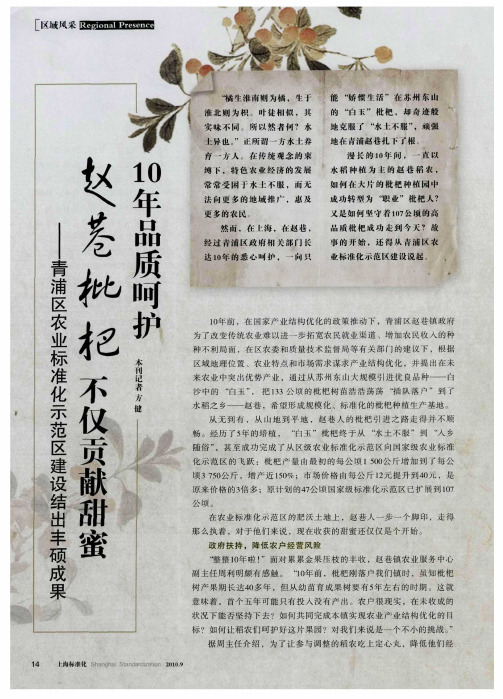 区域风采 Regional Presence
10年品质呵护
赵巷枇杷 不仅贡献甜蜜
——青浦区农业标准化示范区建设结出丰硕成果
本刊记者 方 健
“橘生淮南则为橘，生于
淮北则为枳。叶徒相似，其
实味不同。所以然者何？水
土异也。”正所谓一方水土养
育一方人。在传统观念的束
缚下，特色农业经济的发展
常常受困于水土不服，而无
法向更多的地域推广，惠及
更多的农民。
然而，在上海，在赵巷，
经过青浦区政府相关部门长
达10年的悉心呵护，一向只
能“娇惯生活”在苏州东山
的“白玉”枇杷，却奇迹般
地克服了“水土不服”，顽强
地在青浦赵巷扎下了根。
漫长的10年间，一直以
水稻种植为主的赵巷稻农，
如何在大片的枇杷种植园中
成功转型为“职业”枇杷人？
又是如何坚守着107公顷的高
品质枇杷成功走到今天？故
事的开始，还得从青浦区农
业标准化示范区建设说起。
10年前，在国家产业结构优化的政策推动下，青浦区赵巷镇政府
为了改变传统农业难以进一步拓宽农民就业渠道、增加农民收入的种
种不利局面，在区农委和质量技术监督局等有关部门的建议下，根据
区域地理位置、农业特点和市场需求谋求产业结构优化，并提出在未
来农业中突出优势产业，通过从苏州东山大规模引进优良品种——白
沙中的“白玉”，把133公顷的枇杷树苗浩浩荡荡“插队落户”到了
水稻之乡——赵巷，希望形成规模化、标准化的枇杷种植生产基地。
从无到有，从山地到平地，赵巷人的枇杷引进之路走得并不顺
畅。经历了5年的培植，“白玉”枇杷终于从“水土不服”到“入乡
随俗”，甚至成功完成了从区级农业标准化示范区向国家级农业标准
化示范区的飞跃；枇杷产量由最初的每公顷1 500公斤增加到了每公
顷3 750公斤，增产近150%；市场价格由每公斤12元提升到40元，是
原来价格的3倍多；原计划的47公顷国家级标准化示范区已扩展到107
公顷。
在农业标准化示范区的肥沃土地上，赵巷人一步一个脚印，走得
那么执着，对于他们来说，现在收获的甜蜜还仅仅是个开始。
政府扶持，降低农户经营风险
“整整10年啦！”面对累累金果压枝的丰收，赵巷镇农业服务中心
副主任周利明颇有感触。“10年前，枇杷刚落户我们镇时，虽知枇杷
树产果期长达40多年，但从幼苗育成果树要有5年左右的时期。这就
意味着，首个五年可能只有投入没有产出。农户很现实，在未收成的
状况下能否坚持下去？如何共同完成本镇实现农业产业结构优化的目
标？如何让稻农们呵护好这片果园？对我们来说是一个不小的挑战。”
据周主任介绍，为了让参与调整的稻农吃上定心丸，降低他们经
14 上海标准化 Shanghai Standardization 2010.9